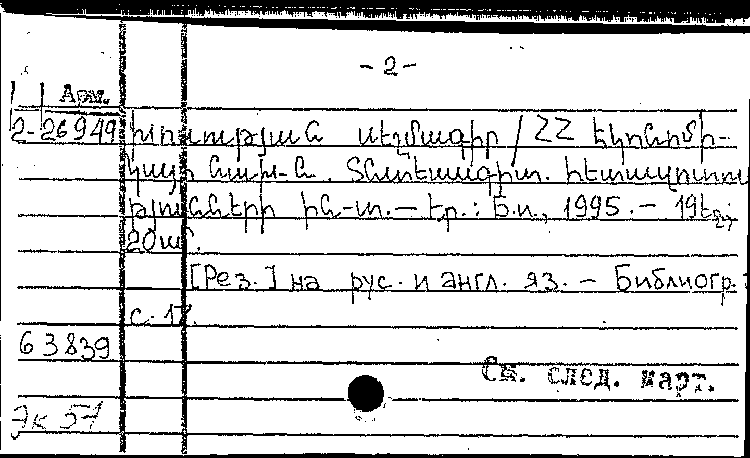 - 2 -
Арм.
2-26949 խոսության սեղմագիր / ՀՀ Էկոնոմի-
կայի նախ-ն. Տնտեսագիտ. հետազոտու
թյունների ին-տ. — Եր. : Б.и., 1995. — 19 էջ;
20սմ.
[Рез.] на рус. и англ. яз. – Библиогр.:
с. 17.
63839
См. след. карт.
Эк 57